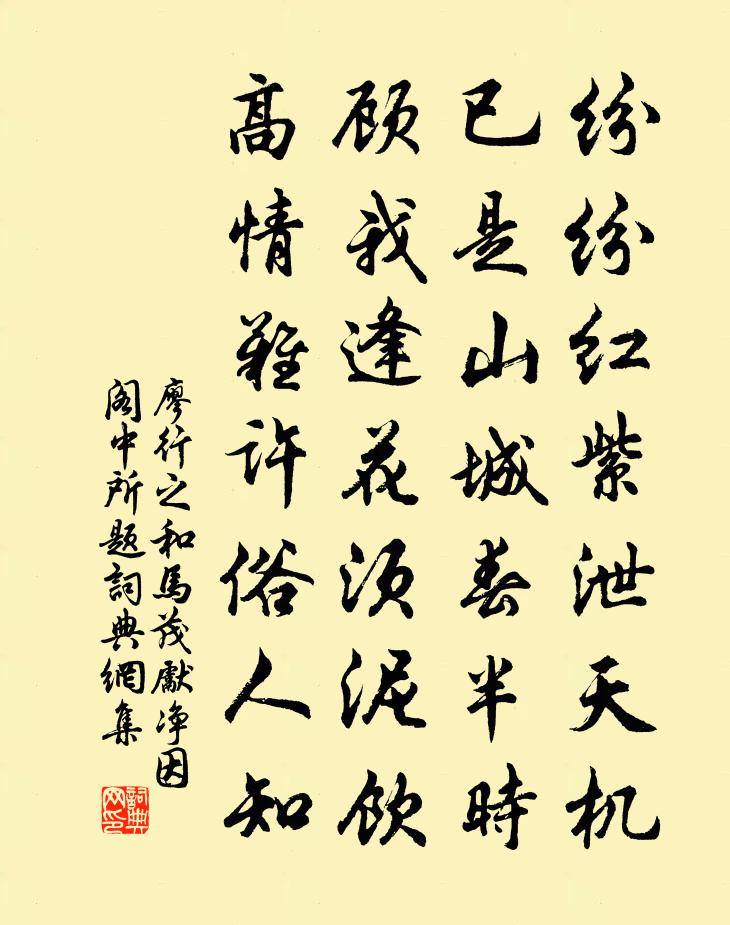 纷纷红紫泄天机
已是山城春半時
顾我逢花须泥饮
高情難许俗人知
廖行之和馬茂獻净因
阁中所题詞典網集
詞典网印